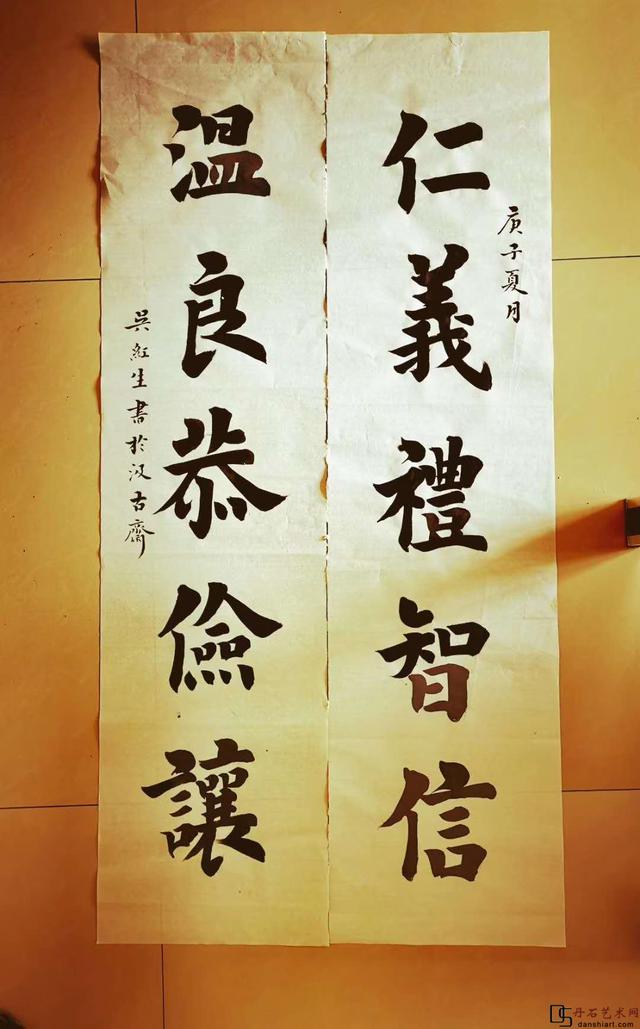 庚子夏月
仁義禮智信
温良恭儉讓
吳紅生書於汲古齋
丹石艺术网
danshiart.com